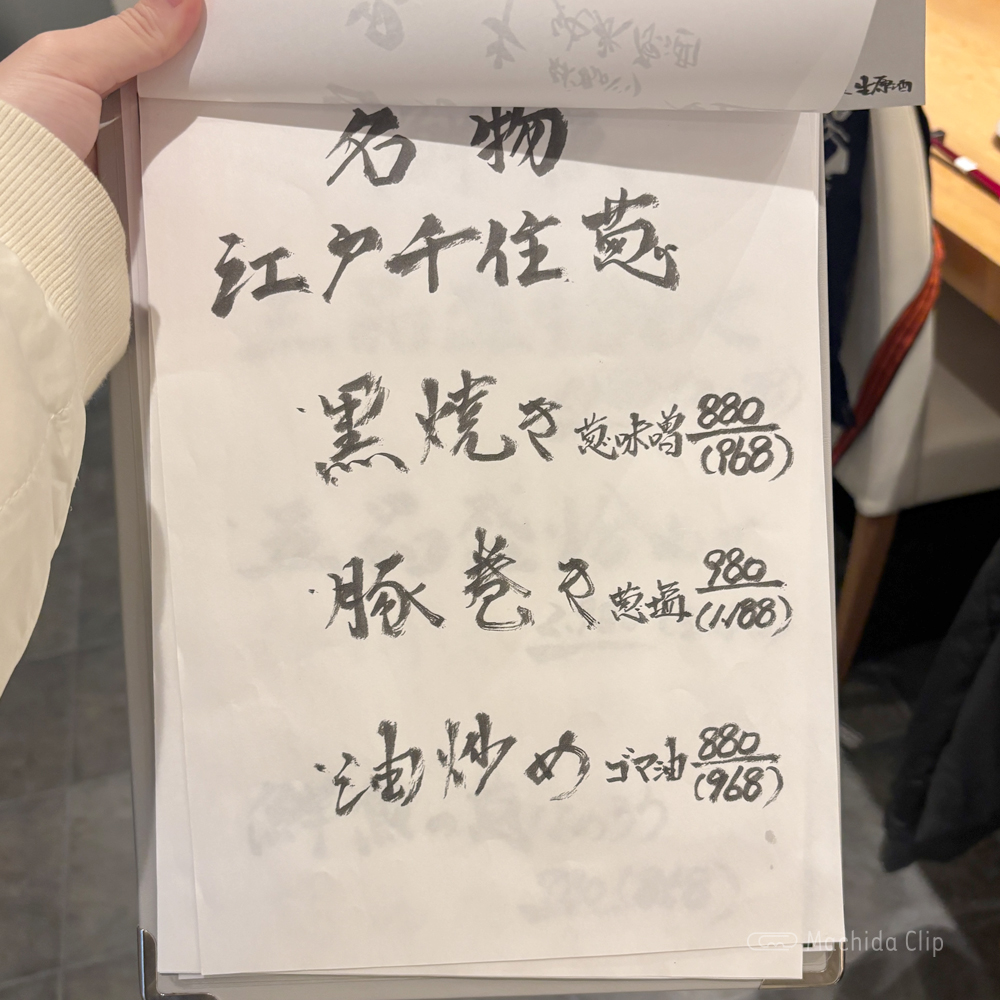 生原酒
名物
江戸千住葱
・黒焼き 葱味噌 880 (968)
・豚巻き 葱塩 980 (1,188)
・油炒め ゴマ油 880 (968)
Machida Clip